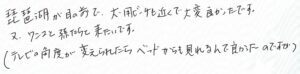 琵琶湖が目の前で、犬用ビーチも近くで大変良かったです。
又、ワンコと孫たちと来たいです。
(テレビの角度が変えられたら ベッドからも見れるんで良かったのですが)